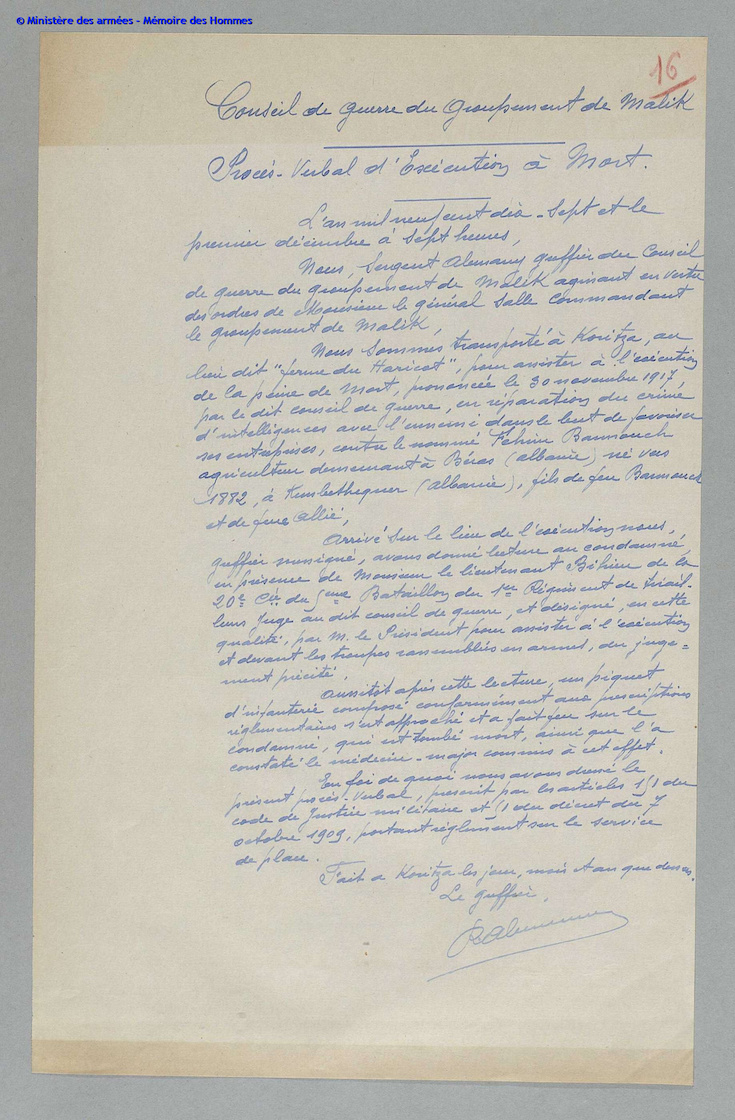 © Ministère des armées - Mémoire des Hommes
16
Conseil de guerre du Groupement de Malik
Procès-Verbal d'Exécution à Mort.
L'an mil neuf cent dix-sept et le
premier décembre à sept heures,
Nous, Sergent Alemany greffier du Conseil
de guerre du groupement de Malik agissant en vertu
des ordres de Monsieur le général Salle Commandant
le groupement de Malik,
Nous sommes transporté à Koritza, au
lieu dit "ferme du Haricot", pour assister à l'exécution
de la peine de Mort, prononcée le 30 novembre 1917,
par le dit conseil de guerre, en réparation du crime
d'intelligences avec l'ennemi dans le but de favoriser
ses entreprises, contre le nommé Fehim
agriculteur demeurant à (albanie) né vers
1882, à (albanie), fils de feu
et de feue Allié,
Arrivé sur le lieu de l'exécution nous,
greffier soussigné, avons donné lecture au condamné,
en présence de Monsieur le lieutenant Béhier de la
20e Cie du 5ème Bataillon du 1er Régiment de tirail-
leurs Juge au dit conseil de guerre, et désigné, en cette
qualité, par M. le Président pour assister à l'exécution
et devant les troupes rassemblées en armes, du juge=
ment précité.
Aussitôt après cette lecture, un piquet
d'infanterie composé conformément aux prescriptions
réglementaires s'est approché et a fait feu sur le
condamné, qui est tombé mort, ainsi que l'a
constaté le médecin-major commis à cet effet.
En foi de quoi nous avons dressé le
présent procès-verbal, prescrit par les articles 151 du
code de Justice militaire et 51 du décret du 7
octobre 1909, portant règlement sur le service
de place.
Fait à Koritza les jour, mois et an que dessus.
Le greffier.